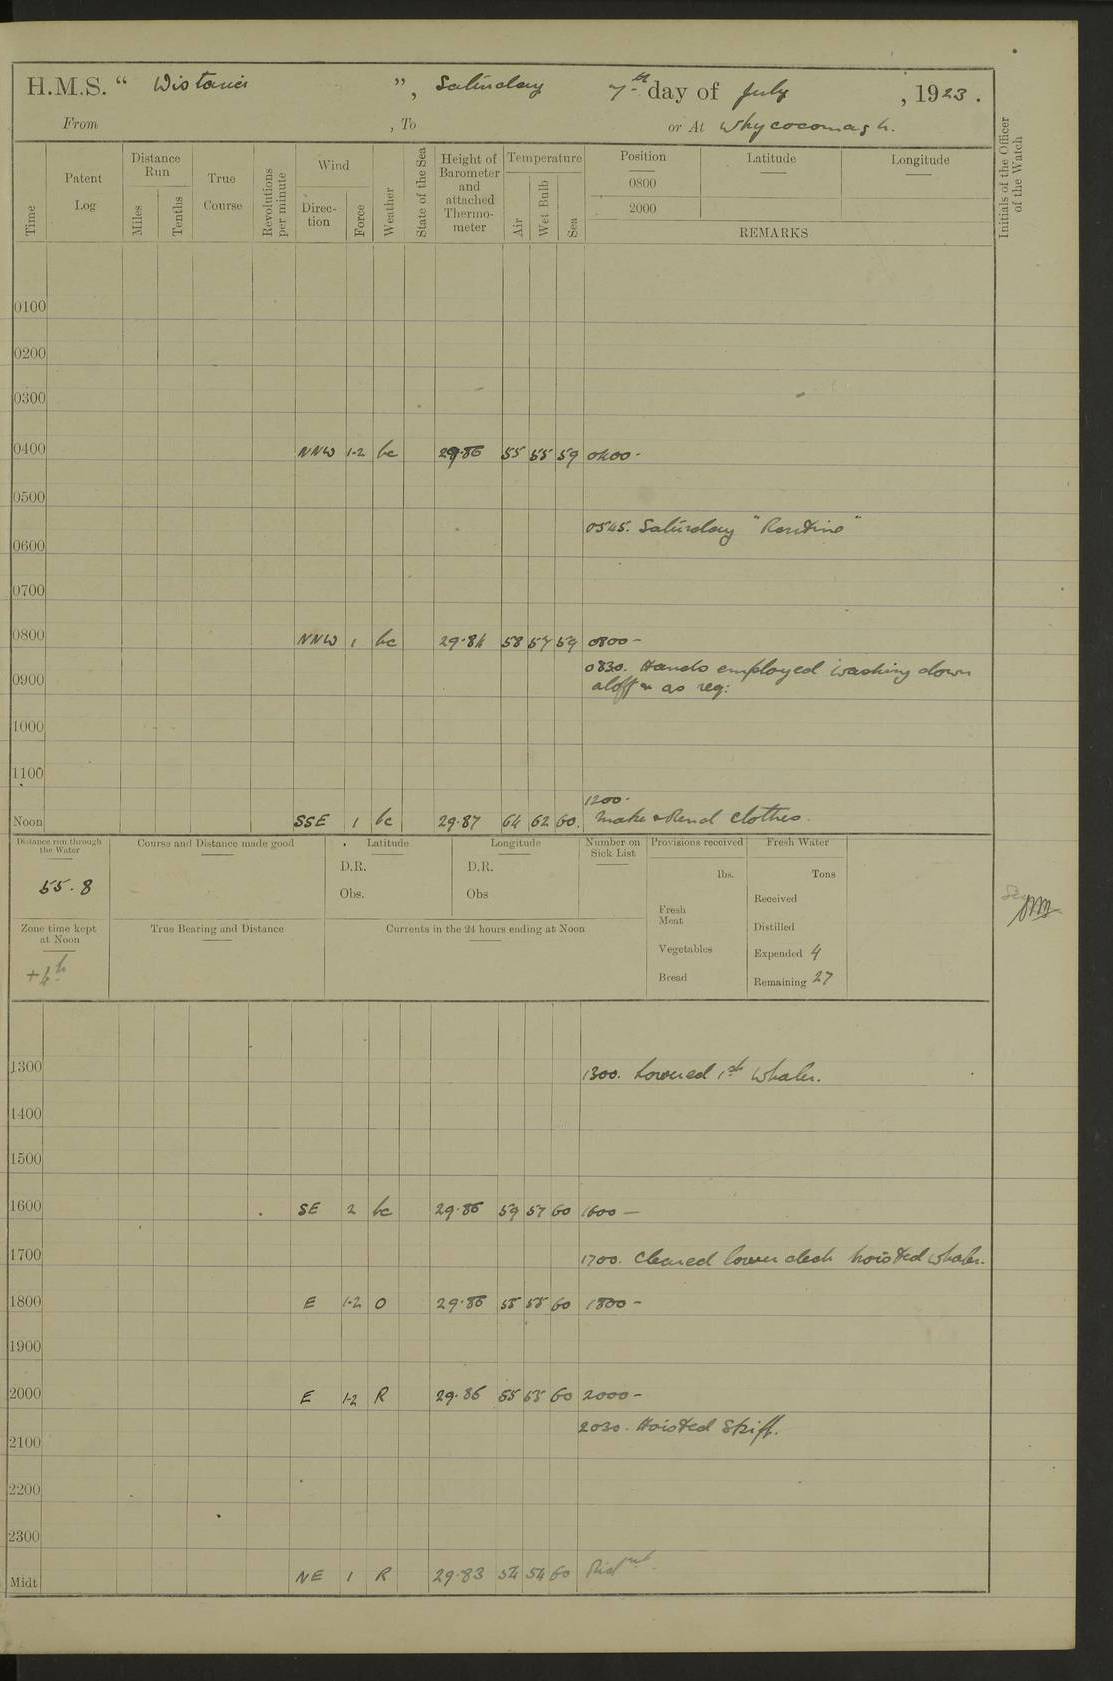 H.M.S. “ Wistaria ”, Saturday 7th day of July, 1923.
From , To or At Whycocomagh.
Time
Patent Log
Distance Run
Miles
Tenths
True Course
Revolutions per minute
Wind
Direction
Force
Weather
State of the Sea
Height of Barometer and attached Thermometer
Temperature
Air
Wet Bulb
Sea
Position
0800
2000
Latitude
Longitude
REMARKS
Initials of the Officer of the Watch
0100
0200
0300
0400 NNW 1-2 bc 29.86 55 55 59 0400-
0500
0545. Saturday "Routine"
0600
0700
0800 NNW 1 bc 29.84 58 57 59 0800-
0830. Hands employed washing down
0900 aloft & as req:
1000
1100
1200.
Noon SSE 1 bc 29.87 64 62 60. Make & Mend clothes.
Distance run through the Water
55.8
Course and Distance made good
Latitude
D.R.
Obs.
Longitude
D.R.
Obs
Number on Sick List
Provisions received
lbs.
Fresh Meat
Vegetables
Bread
Fresh Water
Tons
Received
Distilled
Expended 4
Remaining 27
Zone time kept at Noon
+4h
True Bearing and Distance
Currents in the 24 hours ending at Noon
1300 1300. Lowered 1st Whaler.
1400
1500
1600 SE 2 bc 29.86 59 57 60 1600—
1700 1700. Cleared lower deck hoisted whaler.
1800 E 1-2 O 29.86 55 55 60 1800-
1900
2000 E 1-2 R 29.86 55 55 60 2000-
2030. Hoisted Skiff.
2100
2200
2300
Midt NE 1 R 29.83 54 54 60